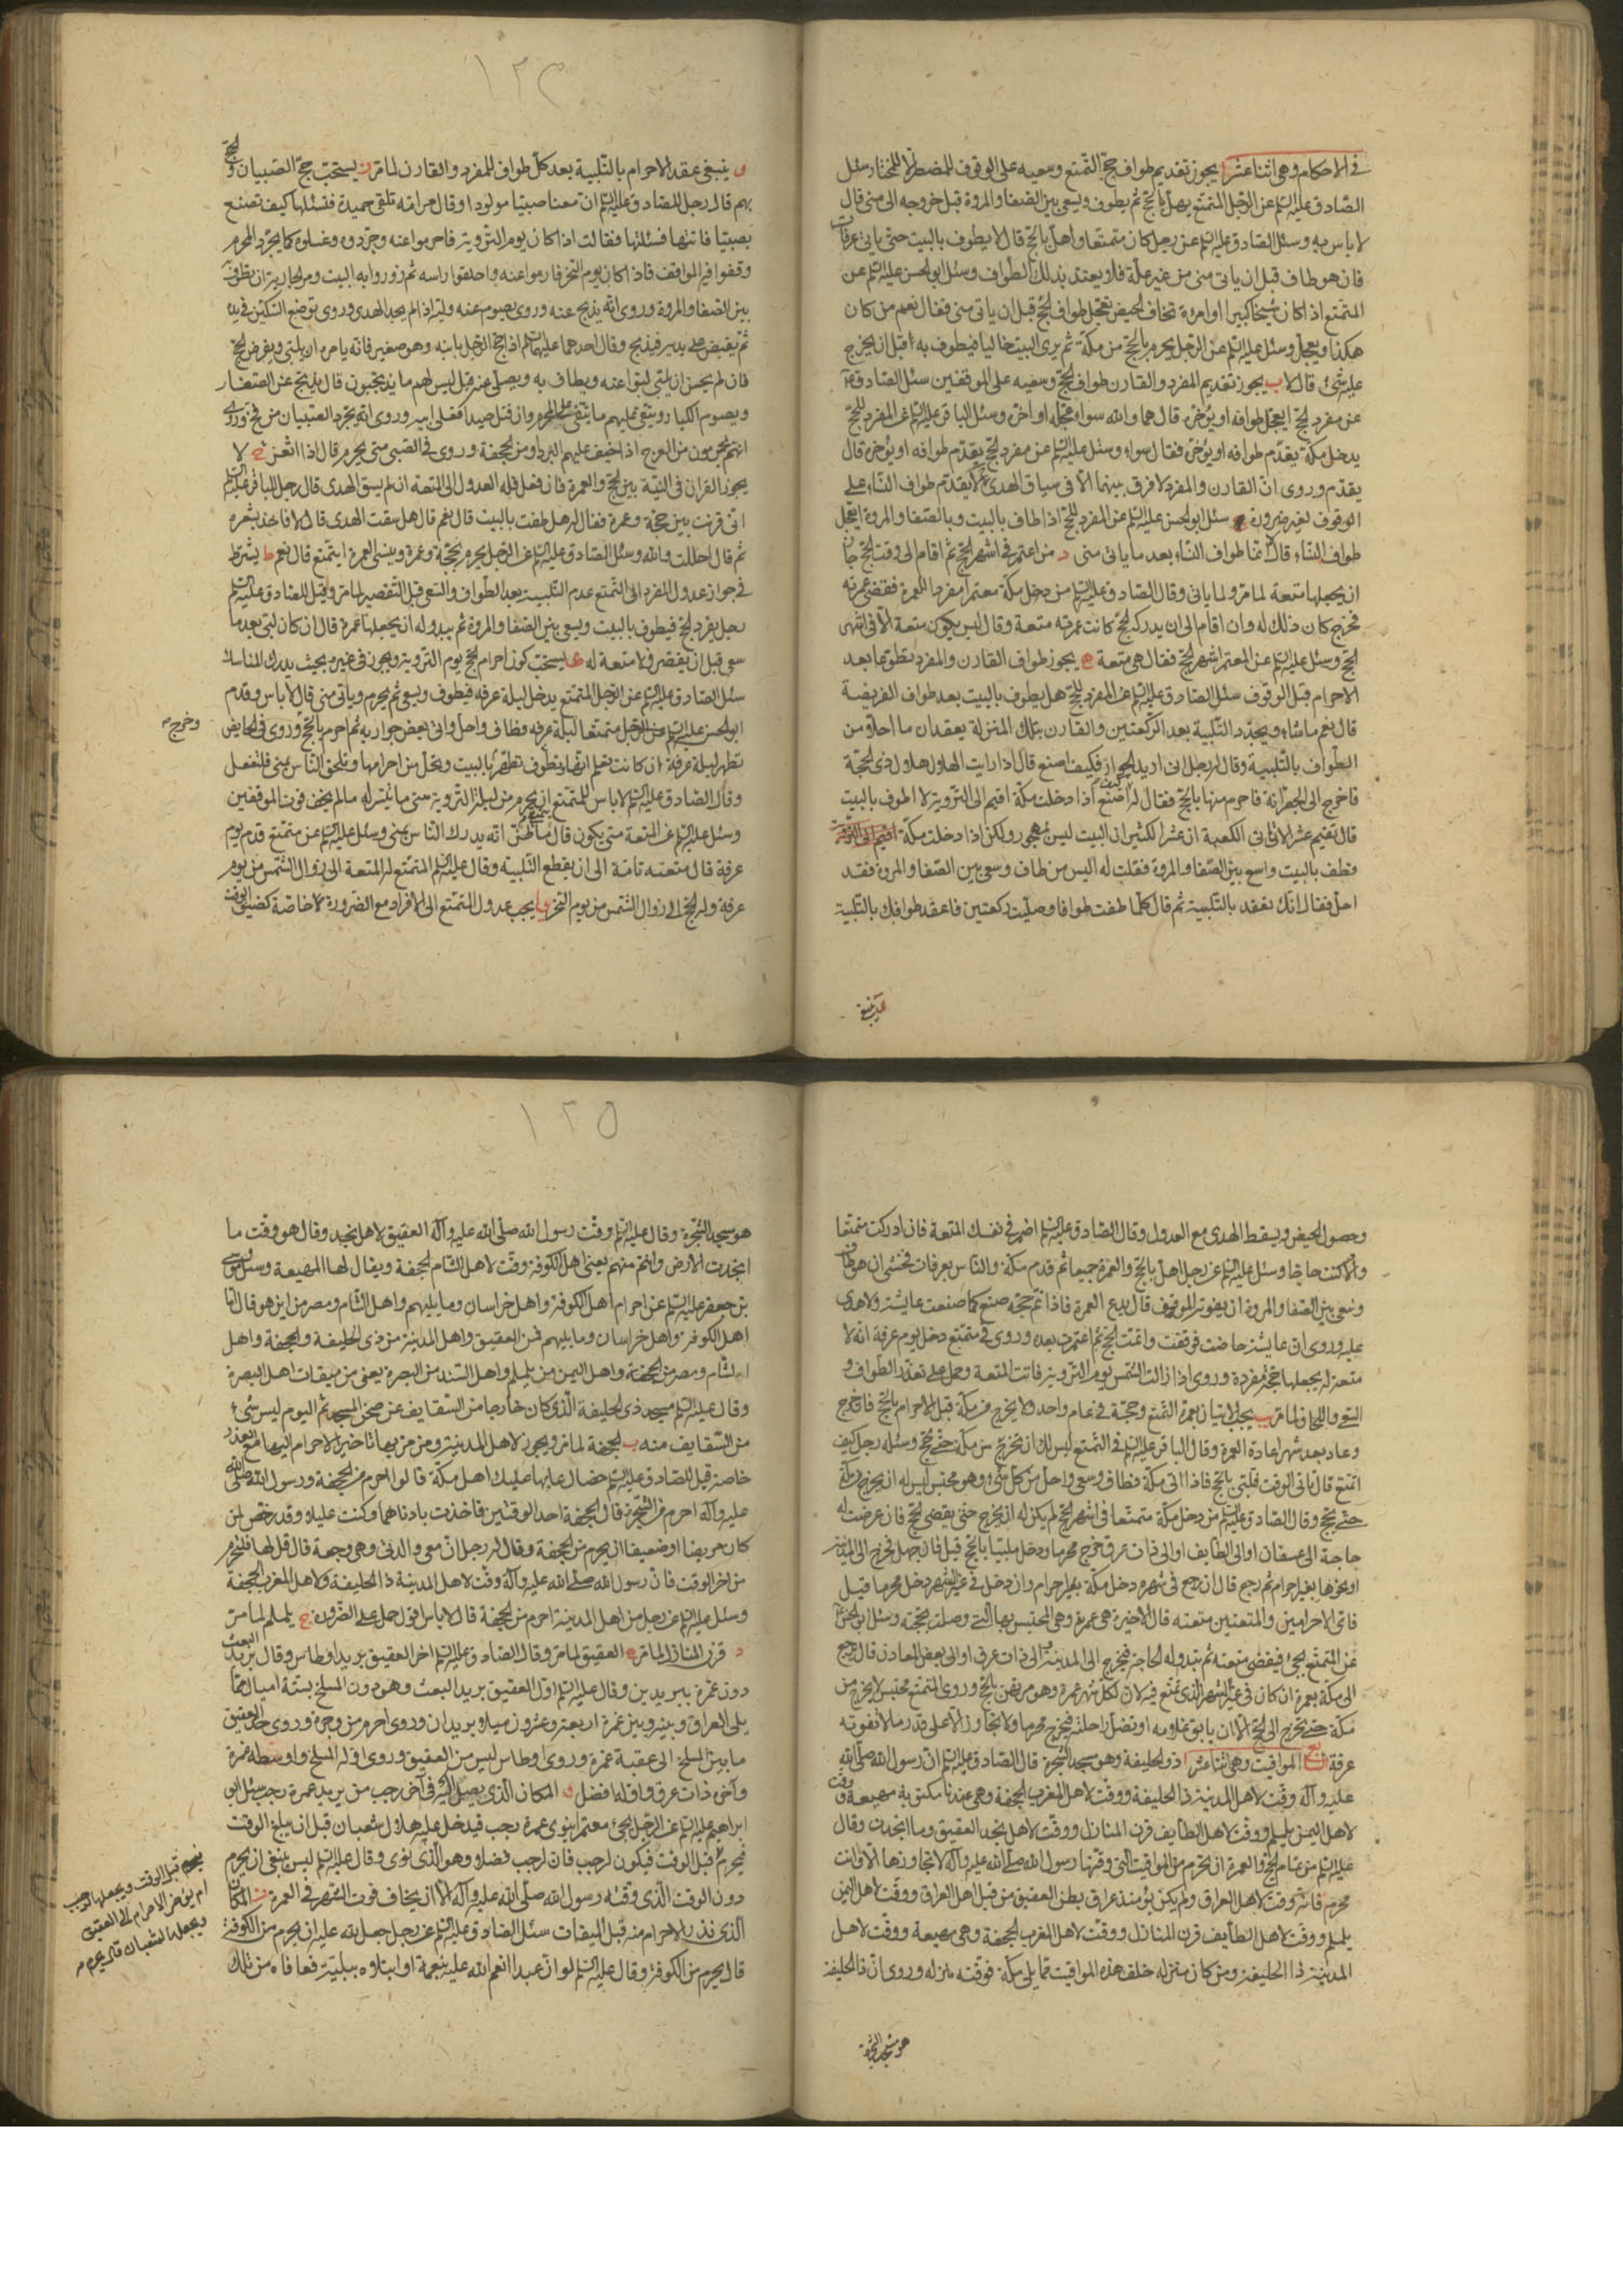 في الاحكام وهي اثنا عشر ا يجوز تقديم طواف حج التمتع وسعيه على الوقوف للمضطر لا للمختار سئل
الصادق عليه السلم عن الرجل المتمتع يهل بالحج ثم يطوف ويسعى بين الصفا والمروة قبل خروجه الى منى قال
لا باس به وسئل الصادق عليه السلم عن رجل كان متمتعا واهل بالحج قال لا يطوف بالبيت حتى ياتي عرفات
فان هو طاف قبل ان ياتي منى من غير علة فلا يعتد بذلك الطواف وسئل ابو الحسن عليه السلم عن
المتمتع اذا كان شيخا كبيرا او امرءة تخاف الحيض يعجل طواف الحج قبل ان ياتي منى فقال نعم من كان
هكذا يعجل وسئل عليه السلم عن الرجل يحرم بالحج من مكة ثم يرى البيت خاليا فيطوف به قبل ان يخرج
عليه شئ قال لا ب يجوز تقديم المفرد والقارن طواف الحج وسعيه على الموقفين سئل الصادق ع
عن مفرد الحج ايعجل طوافه او يؤخره قال هما والله سواء عجله او اخره وسئل الباقر عليه السلم عن المفرد للحج
يدخل مكة يقدم طوافه او يؤخره فقال سواء وسئل عليه السلم عن مفرد الحج يقدم طوافه او يؤخره قال
يقدم وروى ان القارن والمفرد لا فرق بينهما الا في سياق الهدى ولا يقدم طواف النساء على
الوقوف لغير ضرورة ج سئل ابو الحسن عليه السلم عن المفرد للحج اذا طاف بالبيت وبالصفا والمروة ايعجل
طواف النساء قال لا انما طواف النساء بعد ما ياتي منى د من اعتمر في اشهر الحج ثم اقام الى وقت الحج جاز
ان يجعلها متعة لما مر ولما ياتي وقال الصادق عليه السلم من دخل مكة معتمرا مفردا للعمرة فقضى عمرته
فخرج كان ذلك له وان اقام الى ان يدركه الحج كانت عمرته متعة وقال ليس يكون متعة الا في اشهر
الحج وسئل عليه السلم عن المعتمر اشهر الحج فقال هي متعة ه يجوز طواف القارن والمفرد تطوعا بعد
الاحرام قبل الوقوف سئل الصادق عليه السلم عن المفرد للحج هل يطوف بالبيت بعد طواف الفريضة
قال نعم ما شاء ويجدد التلبية بعد الركعتين والقارن بتلك المنزلة يعقدان ما احلا من
الطواف بالتلبية وقال له رجل اني اريد الجوار فكيف اصنع قال اذا رايت الهلال هلال ذي الحجة
فاخرج الى الجعرانة فاحرم منها بالحج فقال له كيف اصنع اذا دخلت مكة اقيم الى التروية لا اطوف بالبيت
قال تقيم عشرا لا تاتي الكعبة ان عشرا لكثير ان البيت ليس بمهجور ولكن اذا دخلت مكة
فطف بالبيت واسع بين الصفا والمروة فقلت له اليس من طاف وسعى بين الصفا والمروة فقد
احل فقال انك تعقد بالتلبية ثم قال كلما طفت طوافا وصليت ركعتين فاعقد طوافك بالتلبية
١٢٣
و ينبغي عقد الاحرام بالتلبية بعد كل طواف للمفرد والقارن لما مر ز يستحب حج الصبيان والحج
بهم قال رجل للصادق عليه السلم ان معنا صبيا مولودا وقال مر امه تلقى حميدة فتسئلها كيف تصنع
بصبيها فاتتها فسئلتها فقالت اذا كان يوم التروية فاحرموا عنه وجردوه وغسلوه كما يجرد المحرم
وقفوا به المواقف فاذا كان يوم النحر فارموا عنه واحلقوا راسه ثم زوروا به البيت ومري الجارية ان تطوف به
بين الصفا والمروة وروى انه يذبح عنه وروى يصوم عنه وليه اذا لم يجد الهدى وروى توضع السكين في يده
ثم يقبض على يديه الرجل فيذبح وقال احدهما عليهما السلم اذا حج الرجل بابنه وهو صغير فانه يامره ان يلبي ويفرض الحج
فان لم يحسن ان يلبي لبوا عنه ويطاف به ويصلى عنه قيل ليس لهم ما يذبحون قال يذبح عن الصغار
ويصوم الكبار ويتقى عليهم ما يتقى على المحرم وان قتل صيدا فعلى ابيه وروى انه يجرد الصبيان من فخ وروى
انهم يحرمون من العرج اذا خيف عليهم البرد او من الجحفة وروى في الصبي متى يحرم قال اذا اثغر ح لا
يجوز القران في النية بين الحج والعمرة فان فعل فله العدول الى المتعة ان لم يسق الهدى قال رجل للباقر عليه السلم
اني قرنت بين حجة وعمرة فقال له هل طفت بالبيت قال نعم قال هل سقت الهدى قال لا فاخذ بشعره
ثم قال احللت والله وسئل الصادق عليه السلم عن الرجل يحرم بحجة وعمرة وينسى العمرة ايتمتع قال نعم ط يشترط
في جواز عدول المفرد الى التمتع عدم التلبية بعد الطواف والسعي قبل التقصير لما مر وقيل للصادق عليه السلم
رجل يفرد الحج فيطوف بالبيت ويسعى بين الصفا والمروة ثم يبدو له ان يجعلها عمرة قال ان كان لبى بعد ما
سعى قبل ان يقصر فلا متعة له ى يستحب كون احرام الحج يوم التروية ويجوز في غيره بحيث يدرك المناسك
سئل الصادق عليه السلم عن الرجل المتمتع يدخل ليلة عرفة فيطوف ويسعى ثم يحرم وياتي منى قال لا باس وقدم
ابو الحسن عليه السلم متمتعا ليلة عرفه فطاف واحل واتى بعض جواريه ثم احرم بالحج وخرج وروى في الحايض
تطهر ليلة عرفة ان كانت تعلم انها تطهر وتطوف بالبيت وتحل من احرامها وتلحق الناس بمنى فلتفعل
وقال الصادق عليه السلم لا باس للمتمتع ان يحرم من ليلة التروية متى ما تيسر له ما لم يخف فوت الموقفين
وسئل عليه السلم عن المتعة متى يكون قال يتمتع ما ظن انه يدرك الناس بمنى وسئل عليه السلم عن متمتع قدم يوم
عرفة قال متعته تامة الى ان يقطع التلبية وقال عليه السلم المتمتع له المتعة الى زوال الشمس من يوم
عرفة وله الحج الى زوال الشمس من يوم النحر يا يجب عدول المتمتع الى الافراد مع الضرورة خاصة كضيق الوقت
وحصول الحيض ويسقط الهدى مع العدول وقال الصادق عليه السلم اضمر في نفسك المتعة فان ادركت متمتعا
والا كنت حاجا وسئل عليه السلم عن رجل اهل بالحج والعمرة جميعا ثم قدم مكة والناس بعرفات فخشى ان هو طاف
وسعى بين الصفا والمروة ان يفوته الموقف قال يدع العمرة فاذا تم حجه صنع كما صنعت عايشة ولا هدى
عليه وروى ان عايشة حاضت فوقفت واتمت الحج ثم اعتمرت بعده وروى في متمتع دخل يوم عرفة انه لا
متعة له يجعلها حجة مفردة وروى اذا زالت الشمس يوم التروية فاتت المتعة وحمل على تعذر الطواف و
السعي واللحاق لما مر يب يجب الاتيان بعمرة التمتع وحجه في عام واحد ولا يخرج من مكة قبل الاحرام بالحج فان خرج
وعاد بعد شهر اعادة العمرة وقال الباقر عليه السلم في التمتع ليس لك ان تخرج من مكة حتى تحج وسئله رجل كيف
اتمتع قال تاتي الوقت فتلبي بالحج فاذا اتى مكة وطاف وسعى واحل من كل شئ وهو محتبس ليس له ان يخرج من مكة
حتى يحج وقال الصادق عليه السلم من دخل مكة متمتعا في اشهر الحج لم يكن له ان يخرج حتى يقضى الحج فان عرضت له
حاجة الى عسفان او الى الطايف او الى ذات عرق خرج محرما ودخل ملبيا بالحج قيل فان جهل فخرج الى المدينة
او نحوها بغير احرام ثم رجع قال ان رجع في شهره دخل مكة بغير احرام وان دخل في غير الشهر دخل محرما قيل
فاى الاحرامين والمتعتين متعته قال الاخيرة هي عمرته وهي المحتبس بها التي وصلت بحجته وسئل ابو الحسن ع
عن المتمتع يجئ فيقضى متعته ثم تبدو له الحاجة فيخرج الى المدينة او الى ذات عرق او الى بعض المعادن قال يرجع
الى مكة بعمرة ان كان في غير الشهر الذي تمتع فيه لان لكل شهر عمرة وهو مرتهن بالحج وروى المتمتع محتبس لا يخرج من
مكة حتى يخرج الى الحج الا ان يابق غلامه او تضل راحلته فيخرج محرما ولا يتجاوز الا على قدر ما لا تفوته
عرفة المواقيت وهي اثنا عشر ا ذو الحليفة وهو مسجد الشجرة قال الصادق عليه السلم ان رسول الله صلى الله
عليه وآله وقت لاهل المدينة ذا الحليفة ووقت لاهل المغرب الجحفة وهي عندنا مكتوبة مهيعة ووقت
لاهل اليمن يلملم ووقت لاهل الطايف قرن المنازل ووقت لاهل نجد العقيق وما انجدت وقال
عليه السلم من تمام الحج والعمرة ان يحرم من المواقيت التي وقتها رسول الله صلى الله عليه وآله لا تجاوزها الا وانت
محرم فانه وقت لاهل العراق ولم يكن يومئذ عراق بطن العقيق من قبل اهل العراق ووقت لاهل اليمن
يلملم ووقت لاهل الطايف قرن المنازل ووقت لاهل المغرب الجحفة وهي مهيعة ووقت لاهل
المدينة ذا الحليفة ومن كان منزله خلف هذه المواقيت مما يلي مكة فوقته منزله وروى ان ذا الحليفة
هو مسجد الشجرة
١٢٥
هو مسجد الشجرة وقال عليه السلم وقت رسول الله صلى الله عليه وآله العقيق لاهل نجد وقال هو وقت ما
انجدت الارض وانتم منهم يعني اهل الكوفة ووقت لاهل الشام الجحفة ويقال لها المهيعة وسئل موسى
بن جعفر عليه السلم عن احرام اهل الكوفة واهل خراسان وما يليهم واهل الشام ومصر من اين هو قال اما
اهل الكوفة واهل خراسان وما يليهم فمن العقيق واهل المدينة من ذي الحليفة والجحفة واهل
الشام ومصر من الجحفة واهل اليمن من يلملم واهل السند من البصرة يعني من ميقات اهل البصرة
وقال عليه السلم مسجد ذي الحليفة الذي كان خارجا من السقايف عن صحن المسجد ثم اليوم ليس شئ
من السقايف منه ب الجحفة لما مر ويجوز لاهل المدينة ومن مر بها تاخير الاحرام اليها مع العذر
خاصة قيل للصادق عليه السلم خصال عابها عليك اهل مكة قالوا احرم من الجحفة ورسول الله صلى الله
عليه وآله احرم من الشجرة قال الجحفة احد الوقتين فاخذت بادناهما وكنت عليلا وقد رخص لمن
كان مريضا او ضعيفا ان يحرم من الجحفة وقال له رجل ان معي والدتي وهي وجعة قال قل لها فلتحرم
من اخر الوقت فان رسول الله صلى الله عليه وآله وقت لاهل المدينة ذا الحليفة ولاهل المغرب الجحفة
وسئل عليه السلم عن رجل من اهل المدينة احرم من الجحفة قال لا باس اقول حمل على الضرورة ج يلملم لما مر
د قرن المنازل لما مر ه العقيق لما مر وقال الصادق عليه السلم اخر العقيق بريد اوطاس وقال بريد البعث
دون غمرة ببريدين وقال عليه السلم اول العقيق بريد البعث وهو دون المسلخ بستة اميال مما
يلي العراق وبينه وبين غمرة اربعة وعشرون ميلا بريدان وروى احرم من وجرة وروى حد العقيق
ما بين المسلخ الى عقبة غمرة وروى اوطاس ليس من العقيق وروى اوله المسلخ واوسطه غمرة
وآخره ذات عرق واوله افضل و المكان الذي يصل اليه في آخر رجب من يريد عمرة رجب سئل ابو
ابراهيم عليه السلم عن الرجل يجئ معتمرا ينوى عمرة رجب فيدخل عليه هلال شعبان قبل ان يبلغ الوقت
يحرم قبل الوقت ويجعلها لرجب
ام يؤخر الاحرام الى العقيق
ويجعلها لشعبان قال يحرم
قبل الوقت فيكون لرجب فان لرجب فضلا وهو الذي نوى وقال عليه السلم ليس ينبغي ان يحرم
دون الوقت الذي وقته رسول الله صلى الله عليه وآله الا ان يخاف فوت الشهر في العمرة ز المكان
الذي نذر الاحرام منه قبل الميقات سئل الصادق عليه السلم عن رجل جعل لله عليه ان يحرم من الكوفة
قال يحرم من الكوفة وقال عليه السلم لو ان عبدا انعم الله عليه نعمة او ابتلاه ببلية فعافاه من تلك